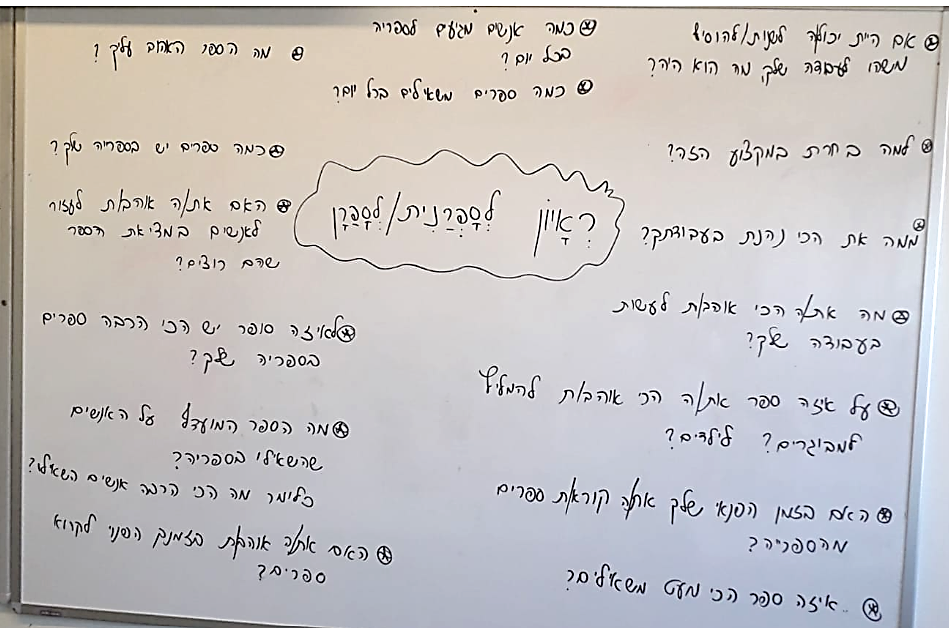 רֵאָיוֹן לְסַפְרָנִית/לְסַפְרָן
אם היית יכול/ה לשנות/להוסיף
משהו לעבודה שלך, מה הוא היה?
למה בחרת במקצוע הזה?
ממה את הכי נהנת בעבודתך?
מה את/ה הכי אוהב/ת לעשות
בעבודה שלך?
על איזה ספר את/ה הכי אוהב/ת להמליץ
למבוגרים? לילדים?
האם בזמן הפנאי שלך את/ה קורא/ת ספרים
מהספרייה?
איזה ספר הכי מעט משאילים?
כמה אנשים מגיעים לספריה
בכל יום?
כמה ספרים משאילים בכל יום?
מה הספר האהוב עליך?
כמה ספרים יש בספריה שלך?
האם את/ה אוהב/ת לעזור
לאנשים במציאת הספר
שהם רוצים?
לאיזה סופר יש הכי הרבה ספרים
בספריה שלך?
מה הספר המועדף על האנשים
שהשאילו בספריה?
כלימר מה הכי הרבה אנשים השאילו?
האם את/ה אוהב/ת בזמנך הפנוי לקרוא
ספרים?